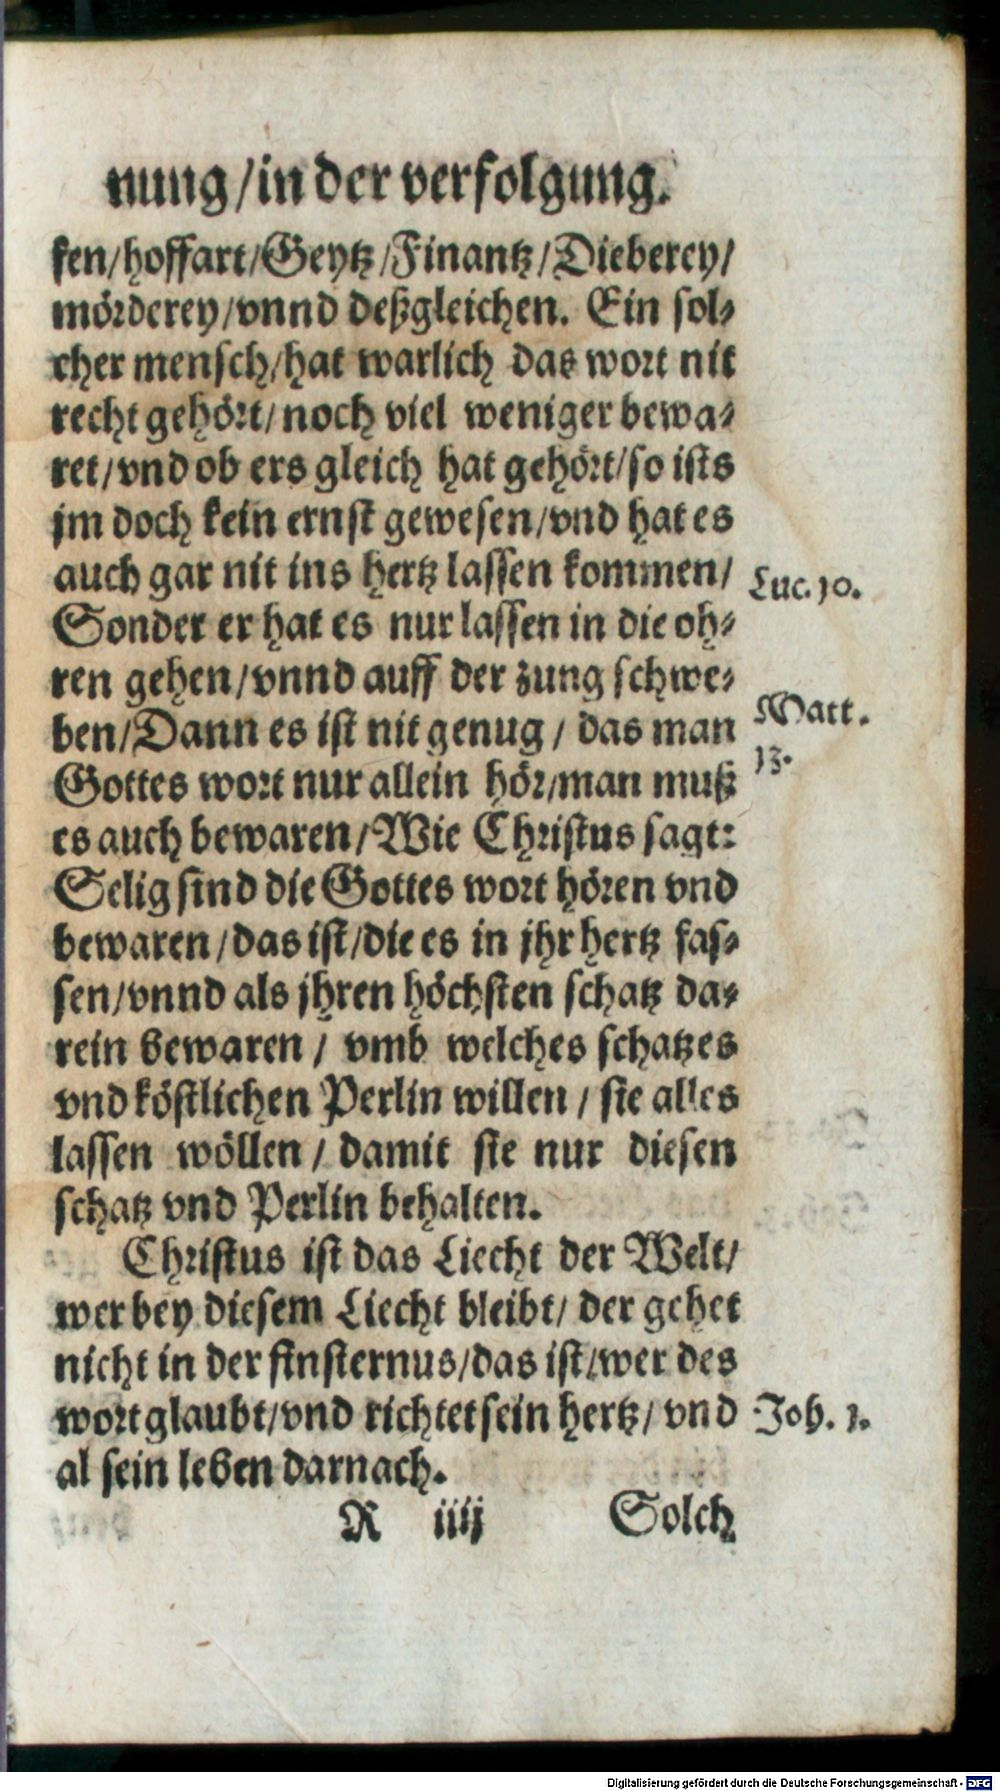 nung/in der verfolgung.
ken/hoffart/Geytz/Finantz/Dieberey/
mörderey/vnnd deßgleichen. Ein sol⸗
cher mensch/hat warlich das wort nit
recht gehört/noch viel weniger bewa⸗
ret/vnd ob ers gleich hat gehört/so ists
jm doch kein ernst gewesen/vnd hat es
auch gar nit ins hertz lassen kommen/
Luc. 10.
Sonder er hat es nur lassen in die oh⸗
ren gehen/vnnd auff der zung schwe⸗
ben/Dann es ist nit genug/ das man
Matt.
Gottes wort nur allein hör/man muß
13.
es auch bewaren/Wie Christus sagt:
Selig sind die Gottes wort hören vnd
bewaren/das ist/die es in jhr hertz fas⸗
sen/vnnd als jhren höchsten schatz da⸗
rein bewaren/ vmb welches schatzes
vnd köstlichen Perlin willen/ sie alles
lassen wöllen/ damit sie nur diesen
schatz vnd Perlin behalten.
Christus ist das Liecht der Welt/
wer bey diesem Liecht bleibt/ der gehet
nicht in der finsternus/das ist/wer des
wort glaubt/vnd richtet sein hertz/ vnd
Joh. 1.
al sein leben darnach.
R iiij Solch
Digitalisierung gefördert durch die Deutsche Forschungsgemeinschaft - DFG